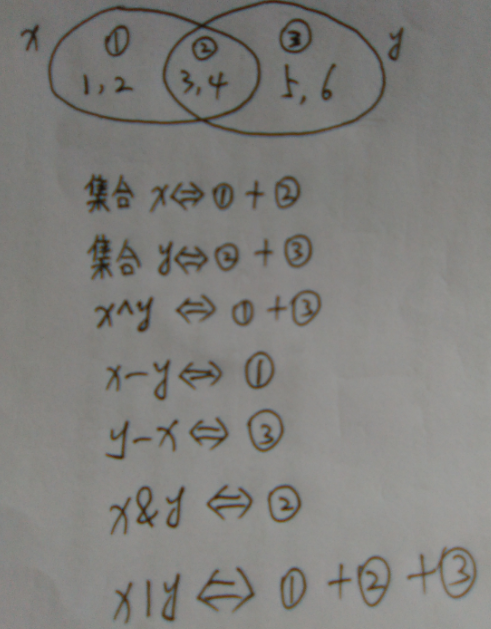 x ① ② ③ y
1,2 3,4 5,6
集合 x⇔①+②
集合 y⇔②+③
x^y ⇔ ①+③
x-y⇔ ①
y-x⇔ ③
x&y ⇔ ②
x|y ⇔ ①+②+③